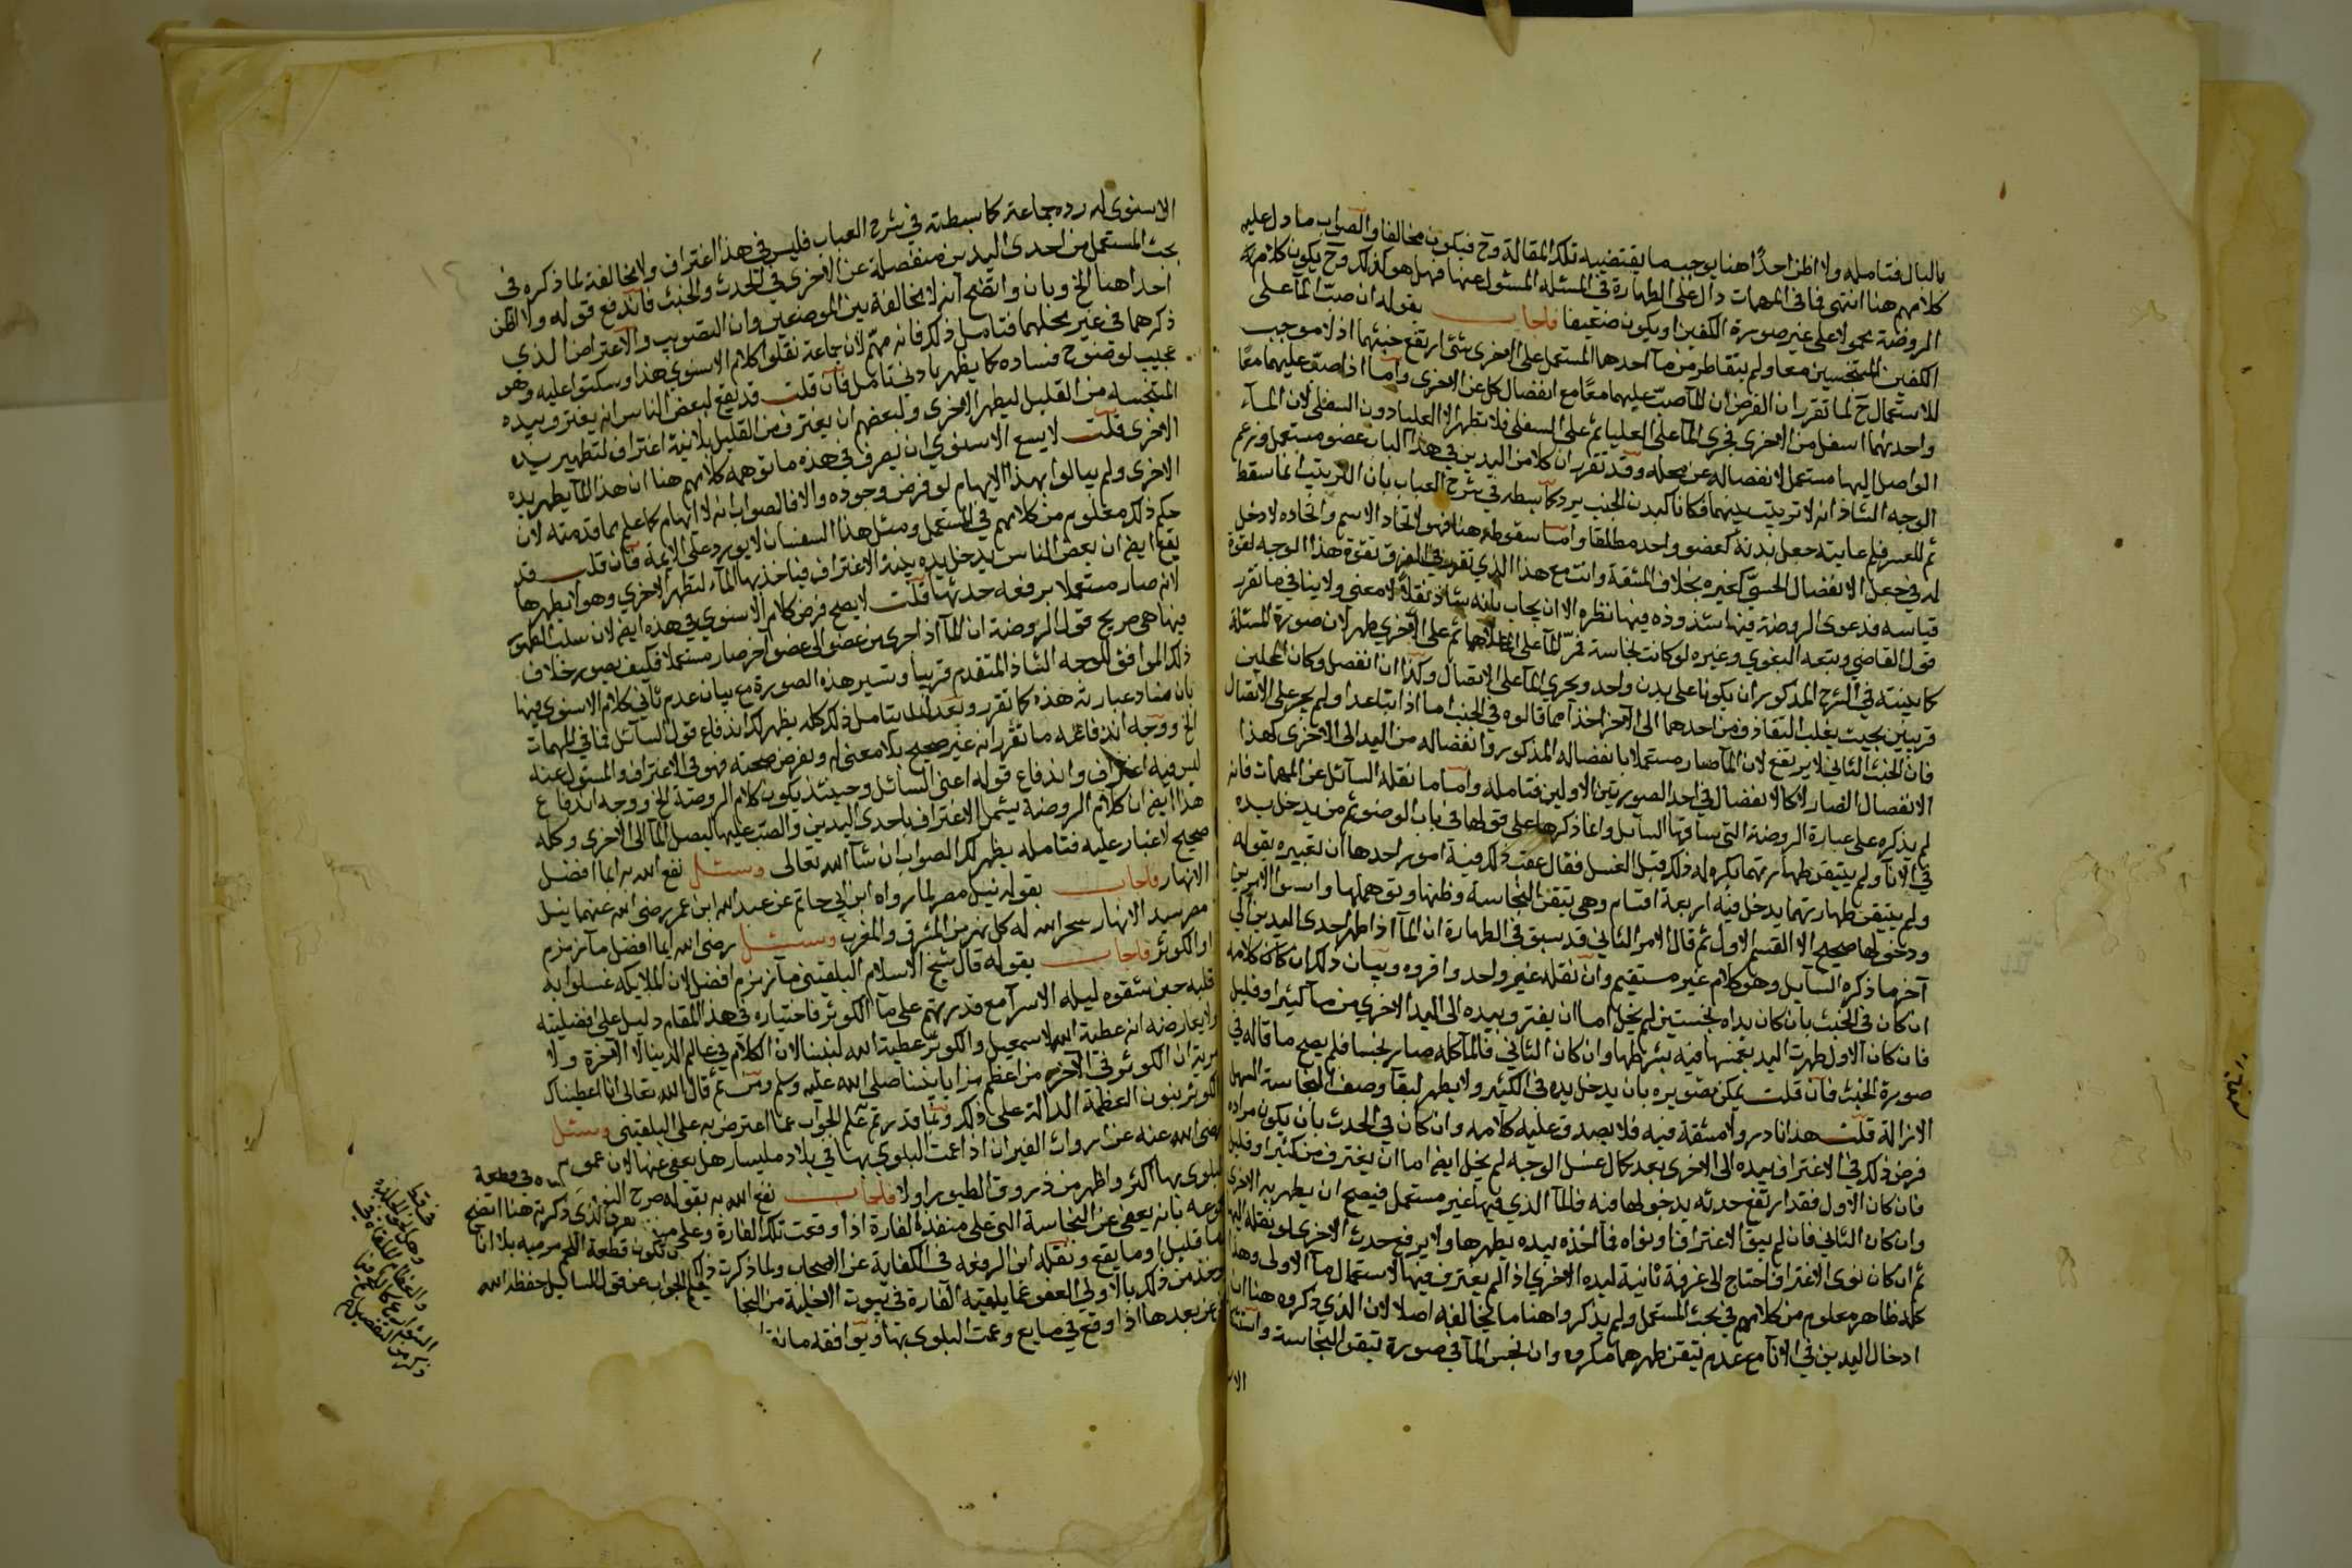 بالبال فتامله ولا اظن احدًا هنا يوجب ما يقتضيه تلك المقالة وح فيكون مخالفا والصواب ما دل عليه
كلامهم هنا انتهى فما في المهمات دال على الطهارة في المسئلة المسئول عنها فهل هو كذلك وح يكون كلام
الروضة محمولا على غير صورة الكفين او يكون ضعيفا فاجاب بقوله ان صبّ المآ على
الكفين المتنجسين معا ولم يتقاطر من مآ احدهما المستعمل على الاخرى شئ ارتفع خبثهما اذ لا موجب
للاستعمال ح لما تقرر ان الفرض ان المآ صبّ عليهما معًا مع انفصال كل عن الاخرى واما اذا صبّ عليهما معًا
واحدىهما اسفل من الاخرى فجرى المآ على العليا ثم على السفلى فلا يطهر الا العليا دون السفلى لان المآء
الواصل اليها مستعمل لانفصاله عن محله وقد تقرر ان كلا من اليدين في هذا الباب عضو مستقل وزعم
الوجه الشاذ انه لا ترتيب بينهما فكانا كبدن الجنب يرد كما بسطه في شرح العباب بان الترتيب انما سقط
ثم للعسر فلم عايته جعل بدنه كعضو واحد مطلقا واما سقوطه هنا فهو لاتحاد الاسم واتحاده لا دخل
له في جعل الانفصال الحسيّ كغيره بخلاف المشقة وانت مع هذا الذي تقرر في الفرق تقوة هذا الوجه لقوة
قياسه فدعوى الروضة فيها شذوذه فيها نظره الا ان يجاب بانه شاذ نقلًا لا معنى ولا ينافي ما تقرر
قول القاضي وتبعه البغوي وغيره لو كانت نجاسة فمرّ المآ على اعلاهما ثم على الاخرى طهر لان صورة المسئلة
كما بينته في الشرح المذكور ان يكونا على بدن واحد ويجري المآ على الاتصال وكذا ان انفصل وكان المحلين
قريبين بحيث يغلب التقاذف من احدهما الى الاخر اخذا مما قالوه في الجنب اما اذا تباعدا ولم يجر على الاتصال
فان الخبث الثاني لا يرتفع لان المآ صار مستعملا بانفصاله المذكور وانفصاله من اليد الى الاخرى كهذا
الانفصال الضار لا كالانفصال في احد الصورتين الاولين فتامله واما ما نقله السآئل عن المهمات فانه
لم يذكره على عبارة الروضة التي ساقها السآيل وانما ذكرها على قولها في باب الوضوء ثم من يدخل يده
في الانآ ولم يتيقن طهارتهما يكره له ذلك قبل الغسل فقال عقب ذلك فيه امور احدها ان تعبيره بقوله
ولم يتيقن طهارتهما يدخل فيه اربعة اقسام وهي تيقن النجاسة وظنها وتوهمها واستوا الامرين
ودخولها صحيح الا القسم الاول ثم قال الامر الثاني قد سبق في الطهارة ان المآ اذا طهر احدى اليدين الي
آخر ما ذكره السآيل وهو كلام غير مستقيم وان نقله غير واحد واقروه وبيان ذلك ان كان كلامه
ان كان في الخبث بان كان يداه نجستين لم يخل اما ان يغترف بيده الى اليد الاخرى من مآ كثير او قليل
فان كان الاول طهرت اليد بغمسها فيه بشرطها وان كان الثاني فالمآ كله صار نجسا فلم يصح ما قاله في
صورة الخبث فان قلت يمكن تصويره بان يدخل يده في الكثير ولا يطهر لبقآ وصف النجاسة السهل
الازالة قلت هذا نادر ولا مشقة فيه فلا يصدق عليه كلامه وان كان في الحدث بان يكون مراده
فرض ذلك في الاغتراف بيده الى الاخرى بعد كمال غسل الوجه لم يخل ايضا اما ان يغترف من كثير او قليل
فان كان الاول فقد ارتفع حدثه بدخولها فيه فالمآ الذي فيها غير مستعمل فيصح ان يطهر به الاخرى
وان كان الثاني فان لم ينو الاغتراف او نواه فمآ اخذه بيده يطهرها ولا يرفع حدث الاخرى لو نقله اليها
ثم ان كان نوى الاغتراف احتاج الى غرفة ثانية ليده الاخرى اذ لم يغترف فيها لاستعمال مآ الاولى وهذا
كله ظاهر معلوم من كلامهم في بحث المستعمل ولم يذكروا هنا ما يخالفه اصلا لان الذي ذكروه هنا ان
ادخال اليدين في الانآ مع عدم تيقن طهرهما مكروه وان نجس المآ في صورة تيقن النجاسة واستثنا
الاسنوي له رده جماعة كما بسطته في شرح العباب فليس في هذا اغتراف ولا مخالفة لما ذكره في
بحث المستعمل من احدى اليدين منفصلة عن الاخرى في الحدث والخبث فاندفع قوله ولا اظن
احدا هنا الخ وبان واتضح انه لا مخالفة بين الموضعين وان التصويب والاعتراض الذي
ذكرهما في غير محلهما فتامل ذلك فانه مهم لان جماعة نقلوا كلام الاسنوي هذا وسكتوا عليه وهو
عجيب لوضوح فساده كما يظهر بادنى تامل فان قلت قد يقع لبعض الناس انه يغترف بيده
المتنجسة من القليل ليطهر الاخرى ولبعضهم ان يغترف من القليل بلا نية اغتراف لتطهير يده
الاخرى قلت لا يسع الاسنوي ان يفرق في هذه ما توهمه كلامهم هنا ان هذا المآ يطهر يده
الاخرى ولم يبالوا بهذا الايهام لو فرض وجوده والا فالصواب انه لا ايهام كما علم مما قدمته لان
حكم ذلك معلوم من كلامهم في المستعمل ومثل هذا السفساف لا يورد على الايمة فان قلت قد
يقع ايضا ان بعض الناس يدخل يده بنية الاغتراف فياخذ بها المآء لتطهر الاخرى وهو لا يطهرها
لانه صار مستعملا برفعه حدثها قلت لا يصح فرض كلام الاسنوي في هذه ايضا لان سلب الطهور
فيها هي صريح قول الروضة ان المآ اذا جرى من عضو الى عضو آخر صار مستعملا فكيف يصور خلاف
ذلك الموافق للوجه الشاذ المتقدم قريبا وتسير هذه الصورة مع بيان عدم تاتي كلام الاسنوي فيها
بان فساد عبارته هذه كما تقرر وبعد ان تتامل ذلك كله يظهر لك اندفاع قول السآئل فما في المهمات
الخ ووجه اندفاعه ما تقرر انه غير صحيح بلا معنى له وبفرض صحته فهو في الاغتراف والمسئول عنه
ليس فيه اغتراف واندفاع قوله اعني السائل وحينئذ يكون كلام الروضة الخ ووجه اندفاع
هذا ايضا ان كلام الروضة يشمل الاغتراف باحدى اليدين والصب عليها ليصل المآ الى الاخرى وكله
صحيح لا غبار عليه فتامله يظهر لك الصواب ان شآ الله تعالى وسئل نفع الله به ايما افضل
الانهار فاجاب بقوله نيل مصر لما رواه ابن ابي حاتم عن عبد الله ابن عمر رضي الله عنهما نيل
مصر سيد الانهار سخر الله له كل نهر من المشرق والمغرب وسئل رضي الله ايما افضل مآ زمزم
او الكوثر فاجاب بقوله قال شيخ الاسلام البلقيني مآ زمزم افضل لان الملايكة غسلوا به
قلبه حين شقوه ليلة الاسرآ مع قدرتهم على مآ الكوثر فاختياره في هذا المقام دليل على افضليته
ولا يعارضه انه عطية الله لاسمعيل والكوثر عطية الله لنبينا لان الكلام في عالم الدنيا لا الاخرة ولا
مرية ان الكوثر في الآخرة من اعظم مزايا نبينا صلى الله عليه وسلم ومن ثم قال الله تعالى انا اعطيناك
الكوثر بنون العظمة الدالة على ذلك وبما قدرته علم الجواب عما اعترض به على البلقيني وسئل
رضي الله عنه عن ارواث الفيران اذا عمت البلوى بها في بلاد مليبار هل يعفى عنها لان عموم
البلوى بها اكثر واظهر من ذروق الطيور اولا فاجاب نفع الله به بقوله صرح
بانه يعفى عن النجاسة التي على منفذ الفارة اذا وقعت تلك الفارة وعلى
ما قليل او مايع ونقله ابن الرفعة في الكفاية عن الاصحاب ولما ذكرت ذلك
من ذلك بالاولى العفو عما يلقيه الفارة في بيوت الاخلية من النجا
بعدها اذا وقع في مايع وعمت البلوى بها ويوافقه ما نقل